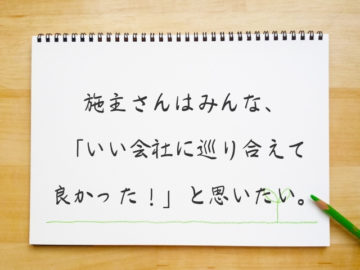 施主さんはみんな、
「いい会社に巡り合えて
良かった！」と思いたい。